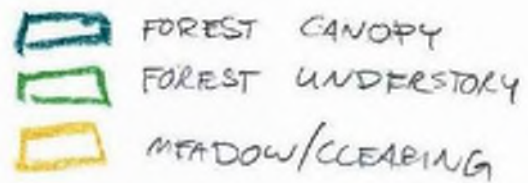 FOREST CANOPY
FOREST UNDERSTORY
MEADOW/CLEARING